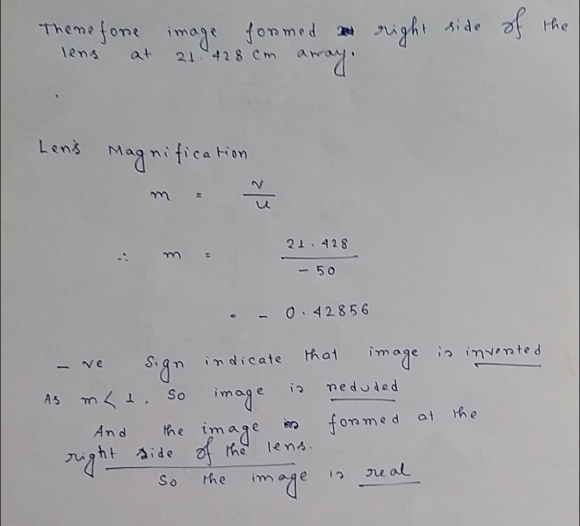 Therefore image formed right side of the
lens at 21.428 cm away.
Len's Magnification
m = v/u
∴ m = 21.428 / - 50
= - 0.42856
- ve sign indicate that image is inverted
As m < 1. So image is reduded
And the image is formed at the
right side of the lens.
So the image is real